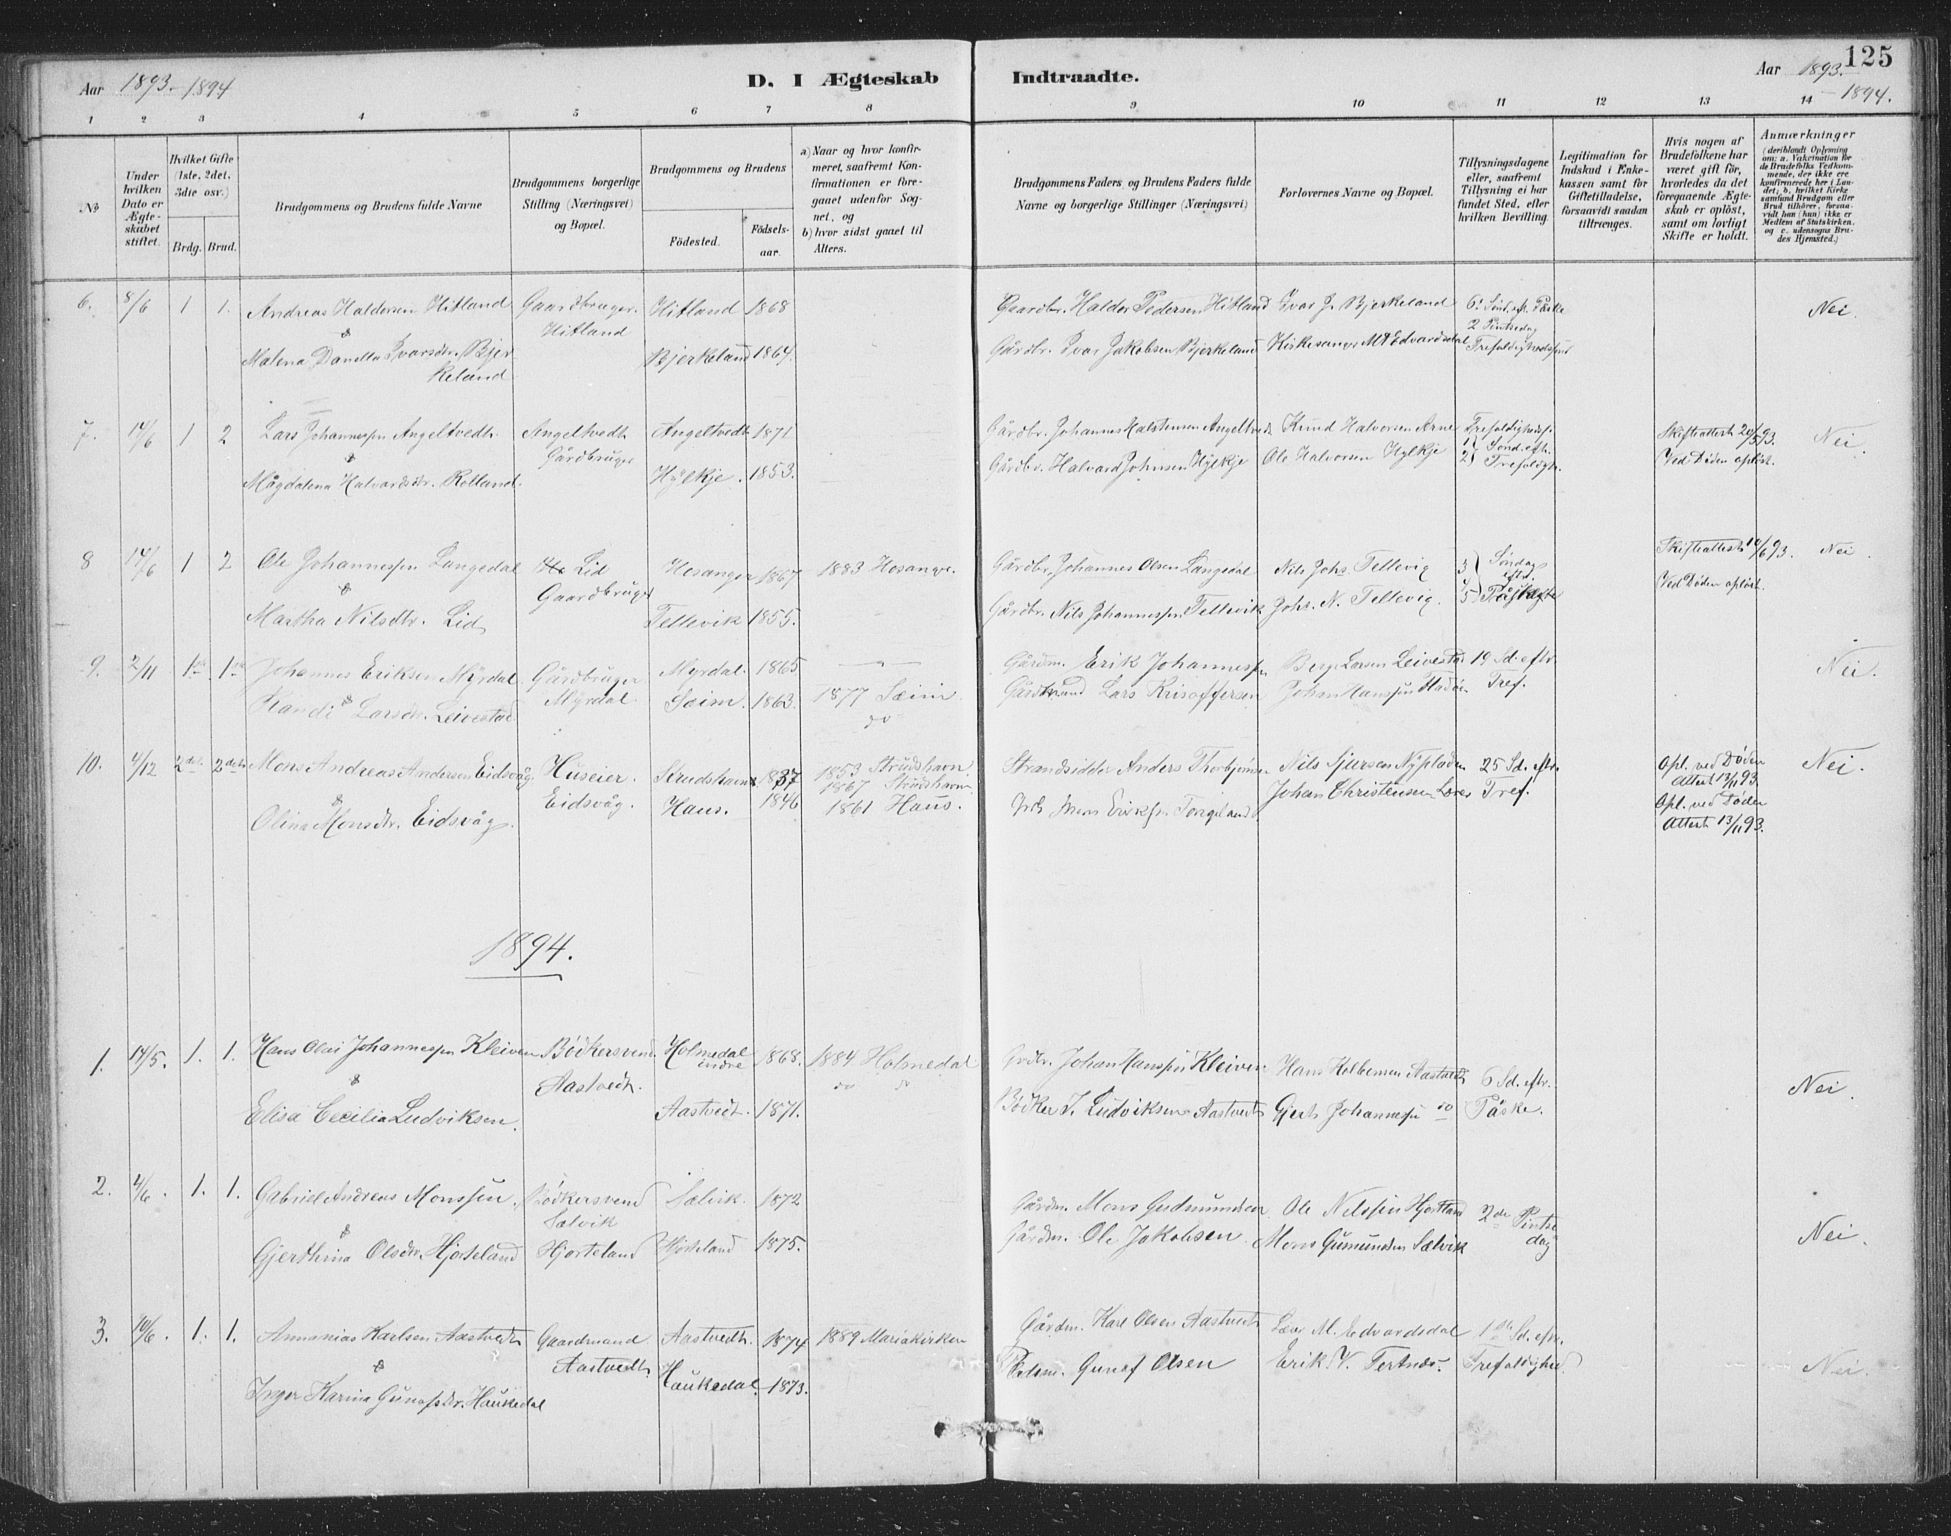 Aar 1893-1894
D. I Ægteskab Indtraadte.
Aar 1893.
- 1894.
125
1 2 3 4 5 6 7 8 9 10 11 12 13 14
No
Under hvilken Dato er Ægteskabet stiftet.
Hvilket Gifte (1ste, 2det, 3die osv.)
Brdg. Brud.
Brudgommens og Brudens fulde Navne
Brudgommens borgerlige Stilling (Næringsvei) og Bopæl.
Brudgommens og Brudens
Fødested.
Fødselsaar.
a) Naar og hvor konfirmeret, saafremt Konfirmationen er foregaaet udenfor Sognet, og
b) hvor sidst gaaet til Alters.
Brudgommens Faders og Brudens Faders fulde Navne og borgerlige Stillinger (Næringsvei)
Forlovernes Navne og Bopæl.
Tillysningsdagene eller, saafremt Tillysning ei har fundet Sted, efter hvilken Bevilling.
Legitimation for Indskud i Enkekassen samt for Giftetilladelse, forsaavidt saadan tiltrænges.
Hvis nogen af Brudefolkene har været gift før, hvorledes da det foregaaende Ægteskab er opløst, samt om lovligt Skifte er holdt.
Anmærkninger (deriblandt Oplysning om: a. Vakcination for de Brudefolks Vedkommende, der ikke ere konfirmerede her i Landet; b. hvilket Kirkesamfund Brudgom eller Brud tilhører, forsaavidt han (hun) ikke er Medlem af Statskirken, og c. udensogns Brudes Hjemsted.)
6. 8/6 1 1. Andreas Haldersen Hitland Gaardbruger. Hitland 1868 Gaardbr. Halder Pedersen Hitland Ivar J. Bjerkeland 6. Sönd. eft. Påske Nei.
& Hitland 2 Pintsedag
Malena Danella Ivarsdr. Bjerkeland Bjerkeland 1864. Gårdbr. Ivar Jakobsen Bjerkeland Kirkesanger M. Edvardsdal Trefoldighedssønd
7. 14/6 1 2 Lars Johannessen Angeltvedt. Angeltvedt Angeltvedt 1871 Gårdbr. Johannes Halstensen Angeltvedt Knud Halvorsen Arne Trefoldigheds. Skifteattest 20/5 93. Nei.
& Gårdbruger 1 2 Sönd. eft.
Magdalena Halvardsdr. Rolland. Hylkje. 1853. Gårdbr. Halvard Johnsen Hylkje Ole Halvorsen Hylkje Trefoldigh. Ved Døden opløst.
8 14/6 1 2 Ole Johannessen Langedal Lid Hosanger 1867 1883 Hosanger. Gårdbr. Johannes Olsen Langedal Nils Johs. Tellevig 3 4 5 Søndag eftr. Påske Skifteattest 10/6 93. Nei.
& Gaardbruger Ved Døden opløst.
Martha Nilsdtr. Lid Tellevik 1855. Gårdbr. Nils Johannessen Tellevik Johs. N. Tellevig.
9. 2/11 1ste 1ste Johannes Eriksen Myrdal. Gårdbruger Myrdal. 1865 Gårdm. Erik Johannessen Berge Larsen Leivestad 19 Sd. eftr. Nei.
Randi & Larsdr. Leivestad Myrdal. Sæim. 1863. 1877 Sæim. Gårdmand Lars Kristoffersen Johan Hanssen Tref.
do
10. 4/12 2det 2det Mons Andreas Andersen Eidsvåg Huseier. Strudshavn 1837 1853 Strudshavn Strandsidder Anders Thorbjørnsen Nils Sjursen Nypladsen 25 Sd. eftr. Opl. ved Døden Nei.
& Eidsvåg. Haus. 1846 1867 Strudshavn Johan Christensen Tref. Attest 13/11 93.
Olina Monsdtr. Eidsvåg. 1861 Haus. Mons Eriks. Opl. ved Døden
Attest 13/11 93.
1894.
1. 14/5. 1. 1. Hans Olai Johannessen Kleiven Bødkersvend. Holmedal indre 1868. 1884 Holmedal Grdbr. Johan Hanssen Kleiven Hans Kolbensen Aastvedt 6 Sd. eftr. Nei.
& Aastvedt. do do
Elisa Cecilia Ludviksen. Aastvedt. 1871. Bødker J. Ludviksen Aastvedt Gjert Johannessen do Påske.
2. 4/6. 1. 1. Gabriel Andreas Monssen. Bødkersvend Sælvik. 1872 Gårdm. Mons Gudmundsen Ole Nilssen Hjortland 2den Pintse Nei.
& Sælvik
Gjerthina Olsdtr. Hjorteland Hjorteland Hjorteland 1875. Gårdm. Ole Jakobsen. Mons Gumundsen Sælvik dag
3. 10/6. 1. 1. Annanias Karlsen Aastvedt Gaardmand Aastvedt. 1874 1889 Mariakirken Gårdm. Karl Olsen Aastvedt Lærer M. Edvardsdal 1ste Sd. eftr. Nei.
& Aastvedt
Inger Karina Gunafsdr. Haukedal Haukedal. 1873. Gunaf Olsen Erik. V. Tertnes. Trefoldighed.